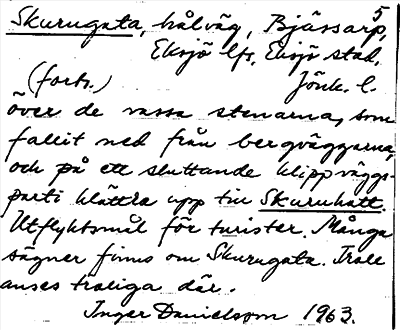 5
Skurugata, hålväg, Bjässarp,
Eksjö lfs, Eksjö stad,
(forts.) Jönk. l.
över de vassa stenarna, som
fallit ned från bergväggarna,
och på ett sluttande klippväggs-
parti klättra upp till Skuruhatt.
Utflyktsmål för turister. Många
sägner finns om Skurugata. Troll
anses troliga där.
Inger Danielsson 1963.